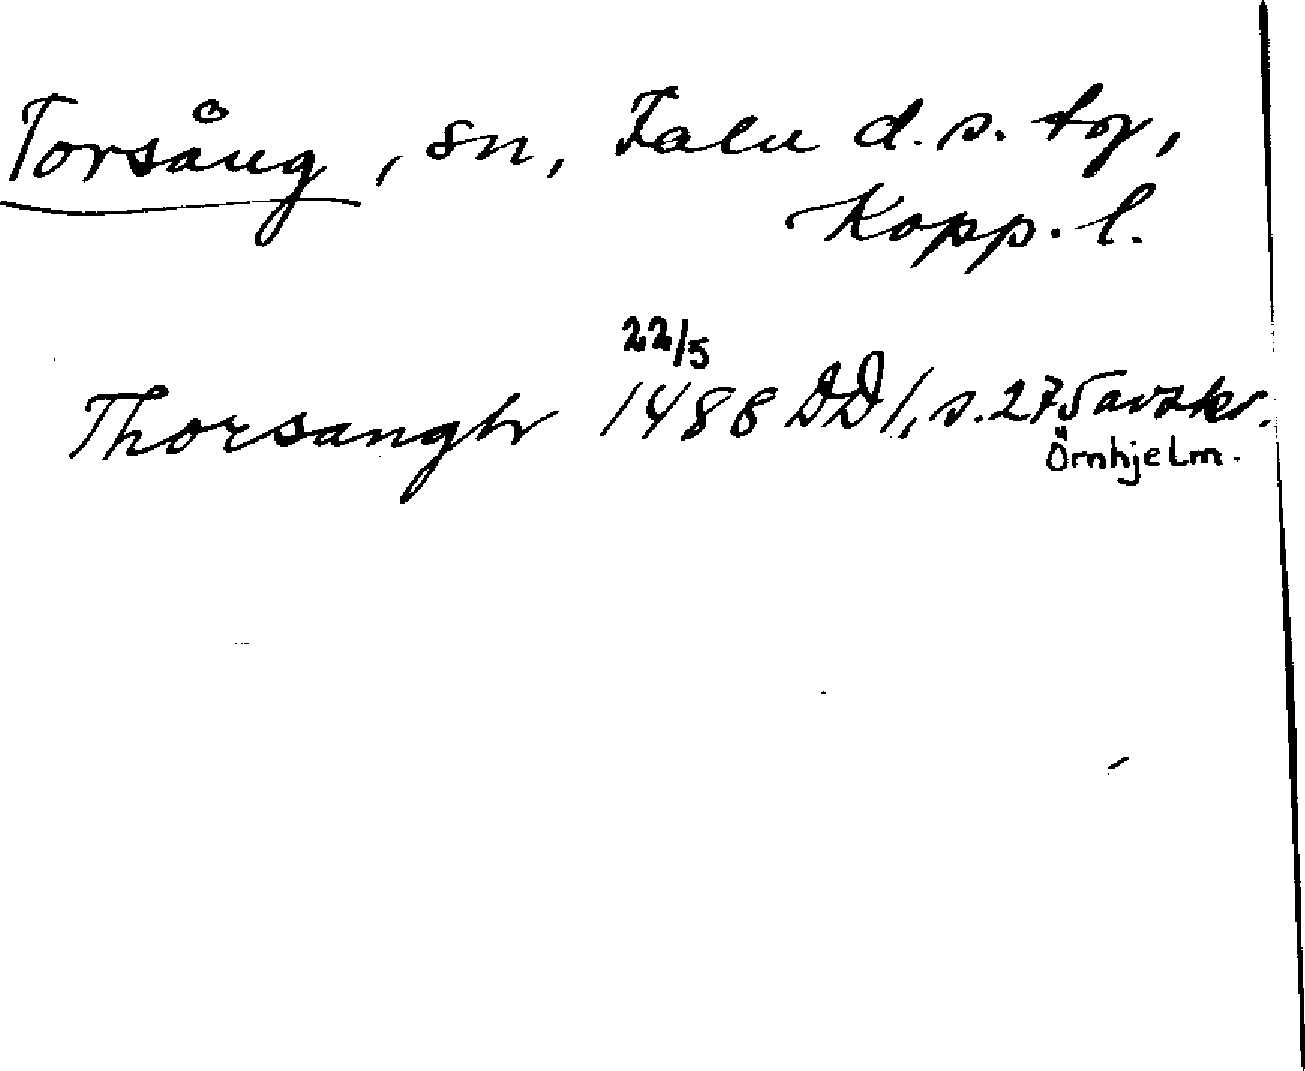 Torsång, sn, Falu d.s. tg,
Kopp. l.
22/5
Thorsangh 1488 DD 1, s. 275 avskr.
Örnhjelm.